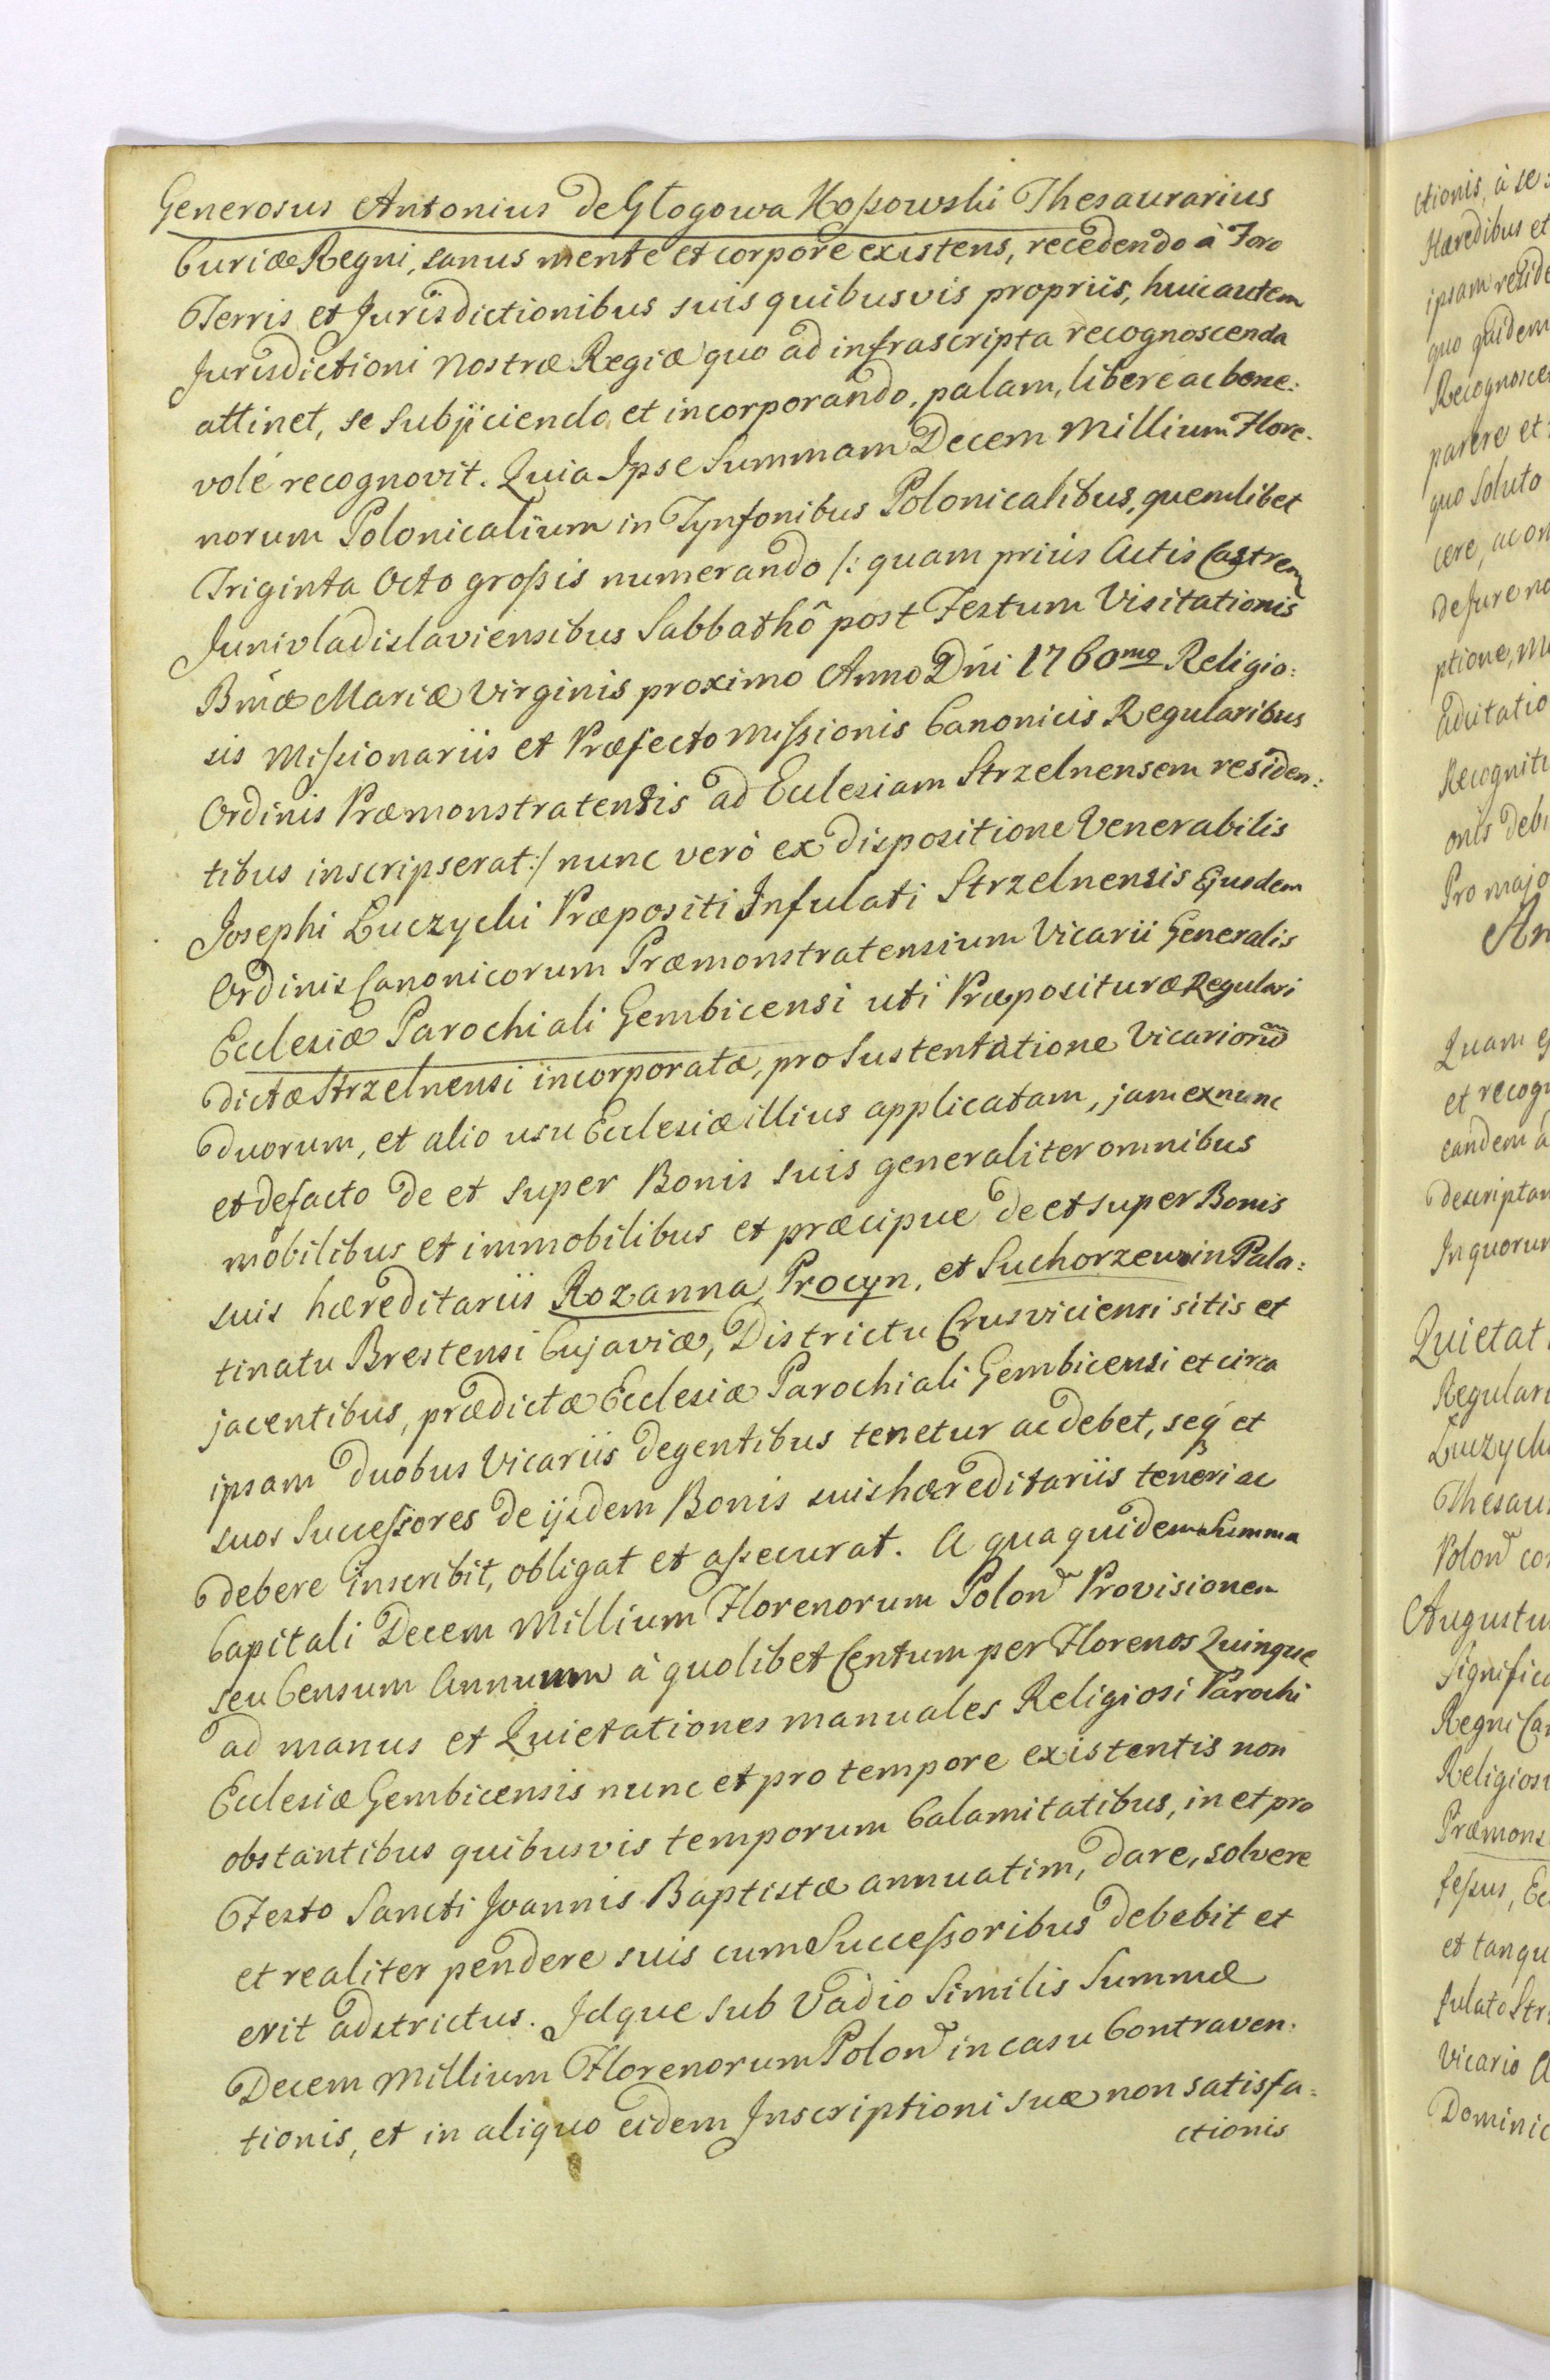 Generosus Antonius de Głogowa Koſsowski Thesaurarius
Curiæ Regni, sanus mente et corpore existens, recedendo à Foro
Terris et Jurisdictionibus suis quibusvis propriis, huic autem
Jurisdictioni Nostræ Regiæ quo ad infrascripta recognoscenda
attinet, se subjiciendo et incorporando, palam, libere ac bene:
volé recognovit. Quia Ipse Summam Decem Millium Flore:
norum Polonicalium in Tynfonibus Polonicalibus, quemlibet
Triginta Octo groſsis numerando /: quam priùs Actis Castren
Junivladislaviensibus Sabbathô post Festum Visitationis
Bmæ Mariæ Virginis proximo Anno Dni 1760mo Religio:
sis Miſsionariis et Præfecto Miſsionis Canonicis Regularibus
Ordinis Præmonstratensis ad Ecclesiam Strzelnensem residen:
tibus inscripserat :/ nunc verò ex dispositione Venerabilis
Josephi Łuczycki Præpositi Infulati Strzelnensis Ejusdem
Ordinis Canonicorum Præmonstratensium Vicarii Generalis
Ecclesiæ Parochiali Gembicensi uti Præposituræ Regulari
dictæ Strzelnensi incorporatæ, pro Sustentatione Vicariorũ
duorum, et alio usu Ecclesiæ illius applicatam, jam ex nunc
et defacto de et super Bonis suis generaliter omnibus
mobilibus et immobilibus et præcipue de et super Bonis
suis hæreditariis Rozanna, Procyn, et Suchorzew in Pala:
tinatu Brestensi Cujaviæ, Districtu Crusviciensi sitis et
jacentibus, prædictæ Ecclesiæ Parochiali Gembicensi et circa
ipsam duobus Vicariis degentibus tenetur ac debet, seq́ et
suos Succeſsores de ijsdem Bonis suis hæreditariis teneri ac
debere inscribit, obligat et aſsecurat. A qua quidem Summa
Capitali Decem Millium Florenorum Polon Provisionem
seu Censum Annuum à quolibet Centum per Florenos Quinque
ad manus et Quietationes manuales Religiosi Parochi
Ecclesiæ Gembicensis nunc et pro tempore existentis non
obstantibus quibusvis temporum Calamitatibus, in et pro
Festo Sancti Joannis Baptistæ annuatim, dare, solvere
et realiter pendere suis cum Succeſsoribus debebit et
erit adstrictus. Idque sub Vadio Similis Summæ
Decem Millium Florenorum Polon in casu Contraven:
tionis, et in aliquo eidem Inscriptioni suæ non satisfa:
ctionis
ctionis, à se
Hæredibus et
ipsam reside
quo quidem
Recognosce
parere et
quo Soluto
cere, ac om
de Jure no
ptione, m
Edictatio
Recognit
onis debi
Pro majo
An
Quam e
et recog
eandem a
descriptam
In quorum
Quietat
Regulari
Łuczycki
Thesau
Polon co
Augustu
Signific
Regni Ca
Religiosi
Præmons
feſsus, Ec
et tanqu
fulato Str
Vicario A
Dominic